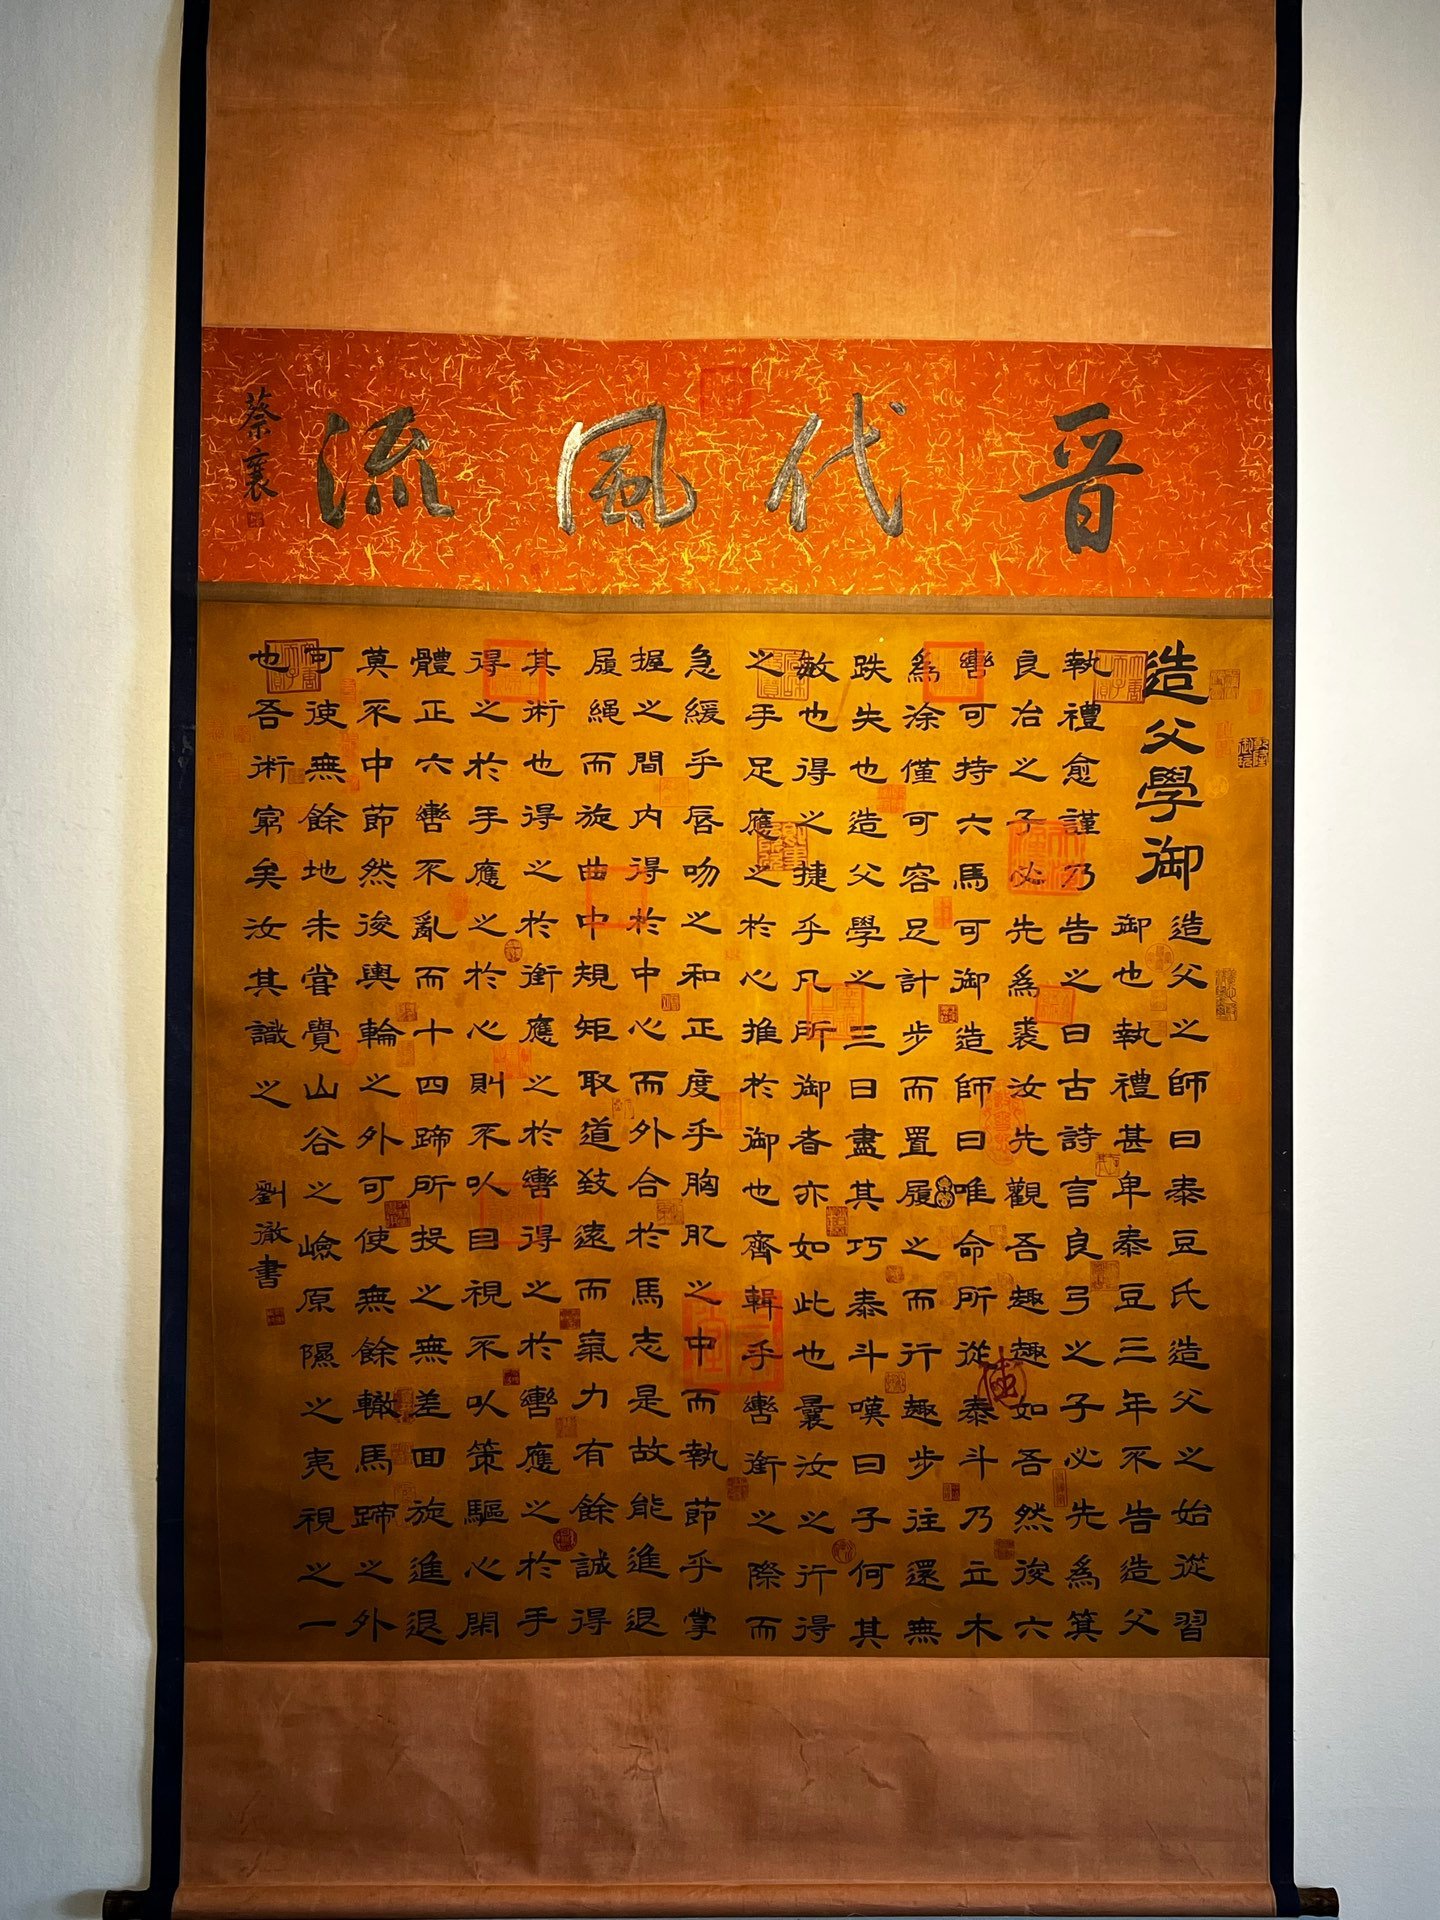 晋代風流
蔡襄
造父學御
造父之師曰泰豆氏造父之始從習
御也執禮甚卑泰豆三年不告造父
執禮愈謹乃告之曰古詩言良弓之子必先為箕
良冶之子必先為裘汝先觀吾趣趣如吾然後六
轡可持六馬可御造師曰唯命所從泰斗乃立木
為涂僅可容足計步而置履之而行趣步往還無
跌失也造父學之三日盡其巧泰斗嘆曰子何其
敏也得之捷乎凡所御者亦如此也曩汝之行得
之手足應之於心推於御也齊輯乎轡銜之際而
急緩乎唇吻之和正度乎胸肊之中而執節乎掌
握之間内得於中心而外合於馬志是故能進退
履繩而旋曲中規矩取道致遠而氣力有餘誠得
其術也得之於銜應之於轡得之於轡應之於手
得之於手應之於心則不以目視不以策驅心閑
體正六轡不亂而十四蹄所投之無差回旋進退
莫不中節然後輿輪之外可使無餘轍馬蹄之外
可使無餘地未嘗覺山谷之嶮原隰之夷視之一
也吾術窮矣汝其識之
劉徹書